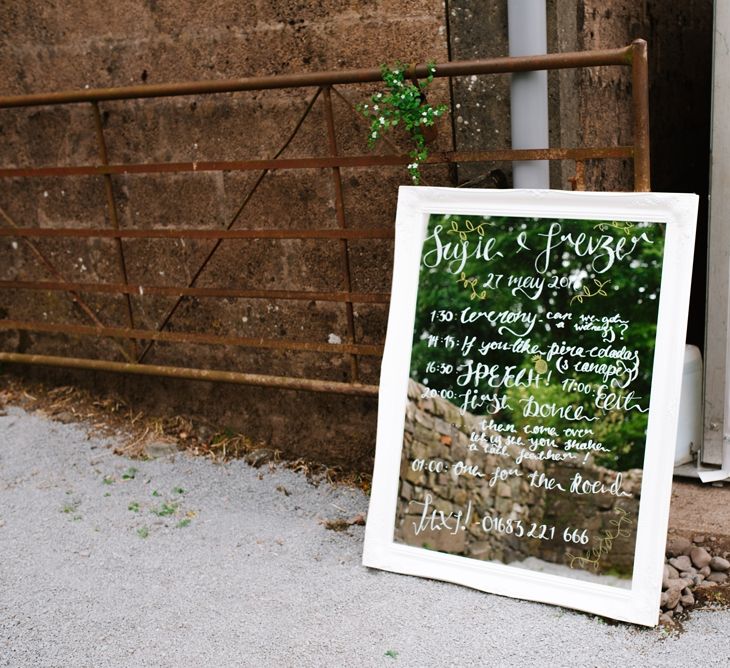 Susie & Frazer
27 may 201
1:30: Ceremony - can we get
a witness?
14:15: If you like piña coladas
(& canapés)
16:30 SPEECH! 17:00: Eat
20:00: first Dance
then come over
let us see you shake
a tail feather!
01:00: One for the Road
Taxi! - 01683 221 666